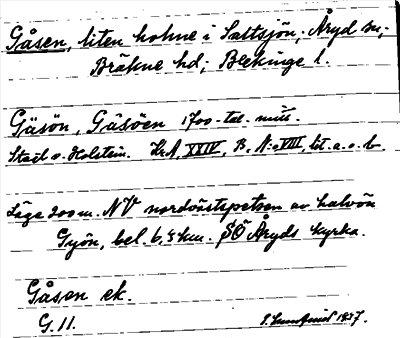 Gåsen, liten holme i Saltsjön; Åryd sn;
Bräkne hd; Blekinge l.
Gåsön, Gåsöen 1700-tal. mitt.
Stael v. Holstein. Kr. A, XXIV, B, N:o VIII, lit. a. o. b
Läge 200 m. NV nordvästspetsen av halvön
Gyön, bel. 6,5 km. SÖ Åryds kyrka.
Gåsen ek.
G. 11.
1937.